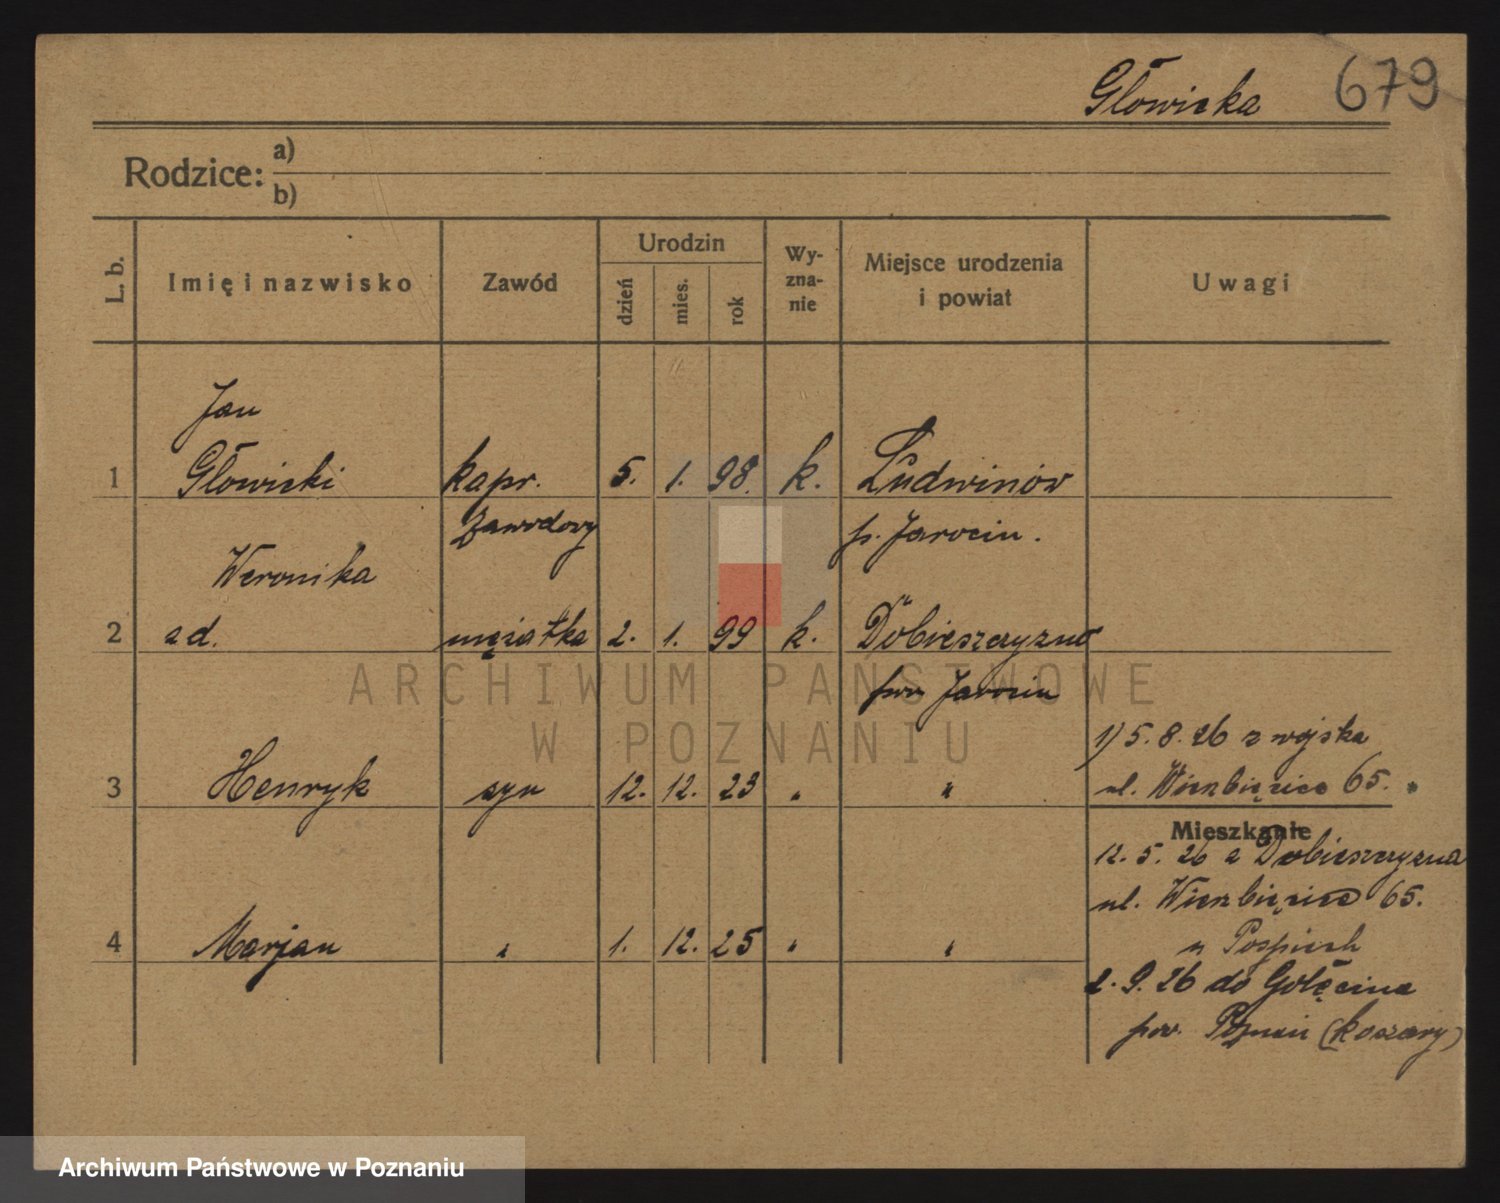 Głowicka 679
Rodzice: a)
b)
L. b. Imię i nazwisko Zawód Urodzin dzień mies. rok Wy-zna-nie Miejsce urodzenia i powiat Uwagi
Jan
1 Głowicki kapr. 5. 1. 98. k. Ludwinów
zawodowy p. Jarocin.
Weronika
2 zd. mężatka 2. 1. 99 k. Dobieszczyzna
pow Jarocin
1) 5.8.26 z wojska
3 Henryk syn 12. 12. 23 " " ul. Wierzbięcice 65.
Mieszkanie
12. 5. 26 z Dobieszczyzna
ul. Wierzbięcice 65.
4 Marjan " 1. 12. 25 " " u Pospiech
2. 9. 26 do Golęcina
pow. Poznań (koszary)
ARCHIWUM PAŃSTWOWE
W POZNANIU
Archiwum Państwowe w Poznaniu